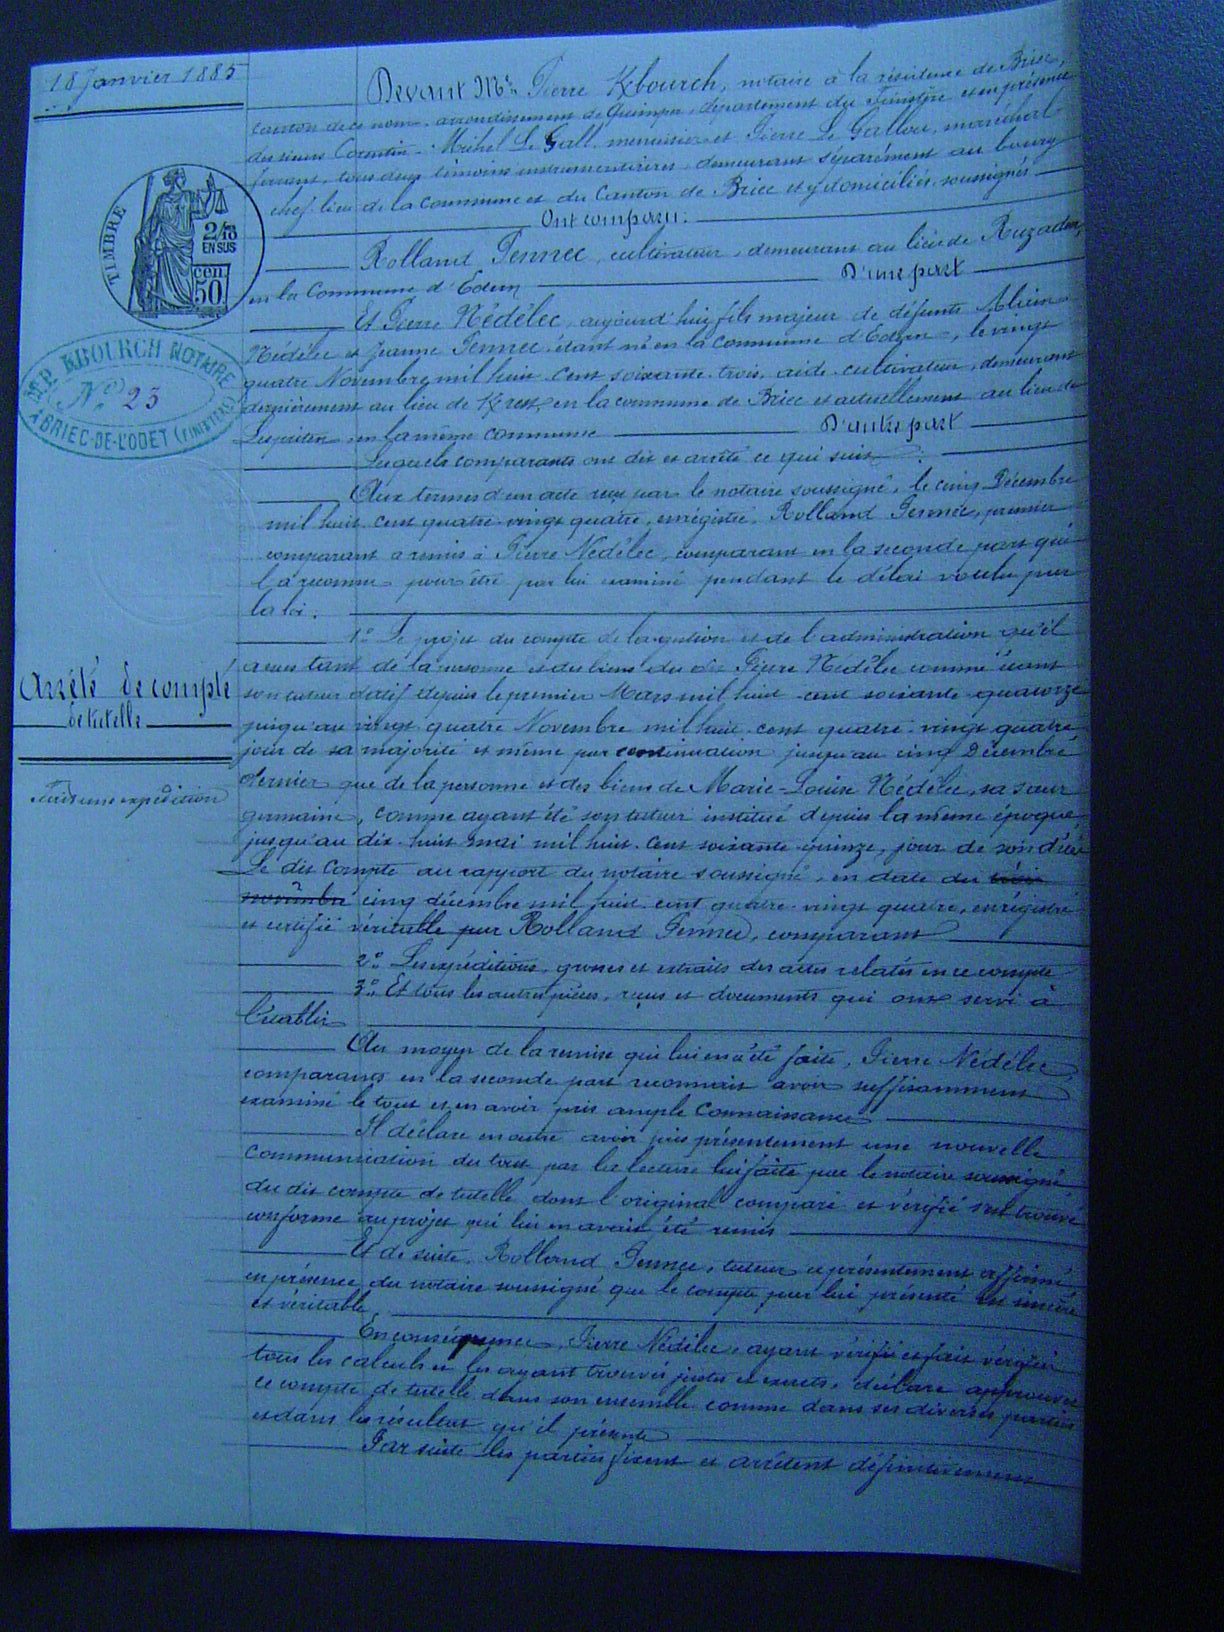 18 Janvier 1885
Devant Me Pierre Kbourch, notaire à la résidence de Briec,
canton de ce nom, arrondissement de Quimper, département du Finistère et en présence
des sieurs Corentin-Michel Le Gall, menuisier et Pierre Le Gallou, maréchal
ferrant, tous deux témoins instrumentaires, demeurant séparément au bourg
chef-lieu de la Commune et du Canton de Briec et y domiciliés, soussignés
Ont comparu:
Rolland Pennec, cultivateur, demeurant au lieu de
en la Commune d'Edern
D'une part
Et Pierre Nédélec, aujourd'hui fils majeur de défunts Alain
Nédélec et Jeanne Pennec, étant né en la commune d'Edern, le vingt
quatre Novembre mil huit cent soixante trois, aide-cultivateur, demeurant
dernièrement au lieu de en la commune de Briec et actuellement au lieu de
en la même commune
D'autre part
Lesquels comparants ont dit et arrêté ce qui suit:
Aux termes d'un acte reçu par le notaire soussigné, le cinq Décembre
mil huit cent quatre vingt quatre, enrégistré, Rolland Pennec, premier
comparant a remis à Pierre Nédélec, comparant en la seconde part qui
l'a reconnu pour être par lui examiné pendant le délai voulu par
la loi.
1° Le projet du compte de la gestion et de l'administration qu'il
a eues tant de la personne et des biens du dit Pierre Nédélec comme étant
son tuteur datif depuis le premier Mars mil huit cent soixante quatorze
jusqu'au vingt quatre Novembre mil huit cent quatre vingt quatre
jour de sa majorité et même par continuation jusqu'au cinq Décembre
dernier que de la personne et des biens de Marie-Louise Nédélec, sa sœur
germaine, comme ayant été son tuteur institué depuis la même époque
jusqu'au dix-huit mai mil huit cent soixante quinze, jour de son décès
Le dit Compte au rapport du notaire soussigné, en date du trois
novembre cinq décembre mil huit cent quatre vingt quatre, enrégistré
et certifié véritable par Rolland Pennec, comparant
2° Les expéditions, grosses et extraits des actes relatés en ce compte
3° Et tous les autres pièces, reçus et documents qui ont servi à
l'établir
Au moyen de la remise qui lui en a été faite, Pierre Nédélec
comparant en la seconde part reconnait avoir suffisamment
examiné le tout et en avoir pris ample connaissance
Il déclare en outre avoir pris présentement une nouvelle
communication du tout par la lecture lui faite par le notaire soussigné
du dit compte de tutelle dont l'original comparé et vérifié s'est trouvé
conforme au projet qui lui en avait été remis
Et de suite, Rolland Pennec, tuteur a présentement affirmé
en présence du notaire soussigné que le compte par lui présenté est sincère
et véritable.
En conséquence, Pierre Nédélec, ayant vérifié et fait vérifier
tous les calculs et les ayant trouvés justes et exacts, déclare approuver
ce compte de tutelle dans son ensemble comme dans ses diverses parties
et dans le résultat qu'il présente
Par suite les parties fixent et arrêtent définitivement
TIMBRE
2/10
EN SUS
50 cen
Me P. KBOURCH NOTAIRE
No 23
A BRIEC-DE-L'ODET (FINISTERE)
Arrêté de compte
de tutelle
expédition